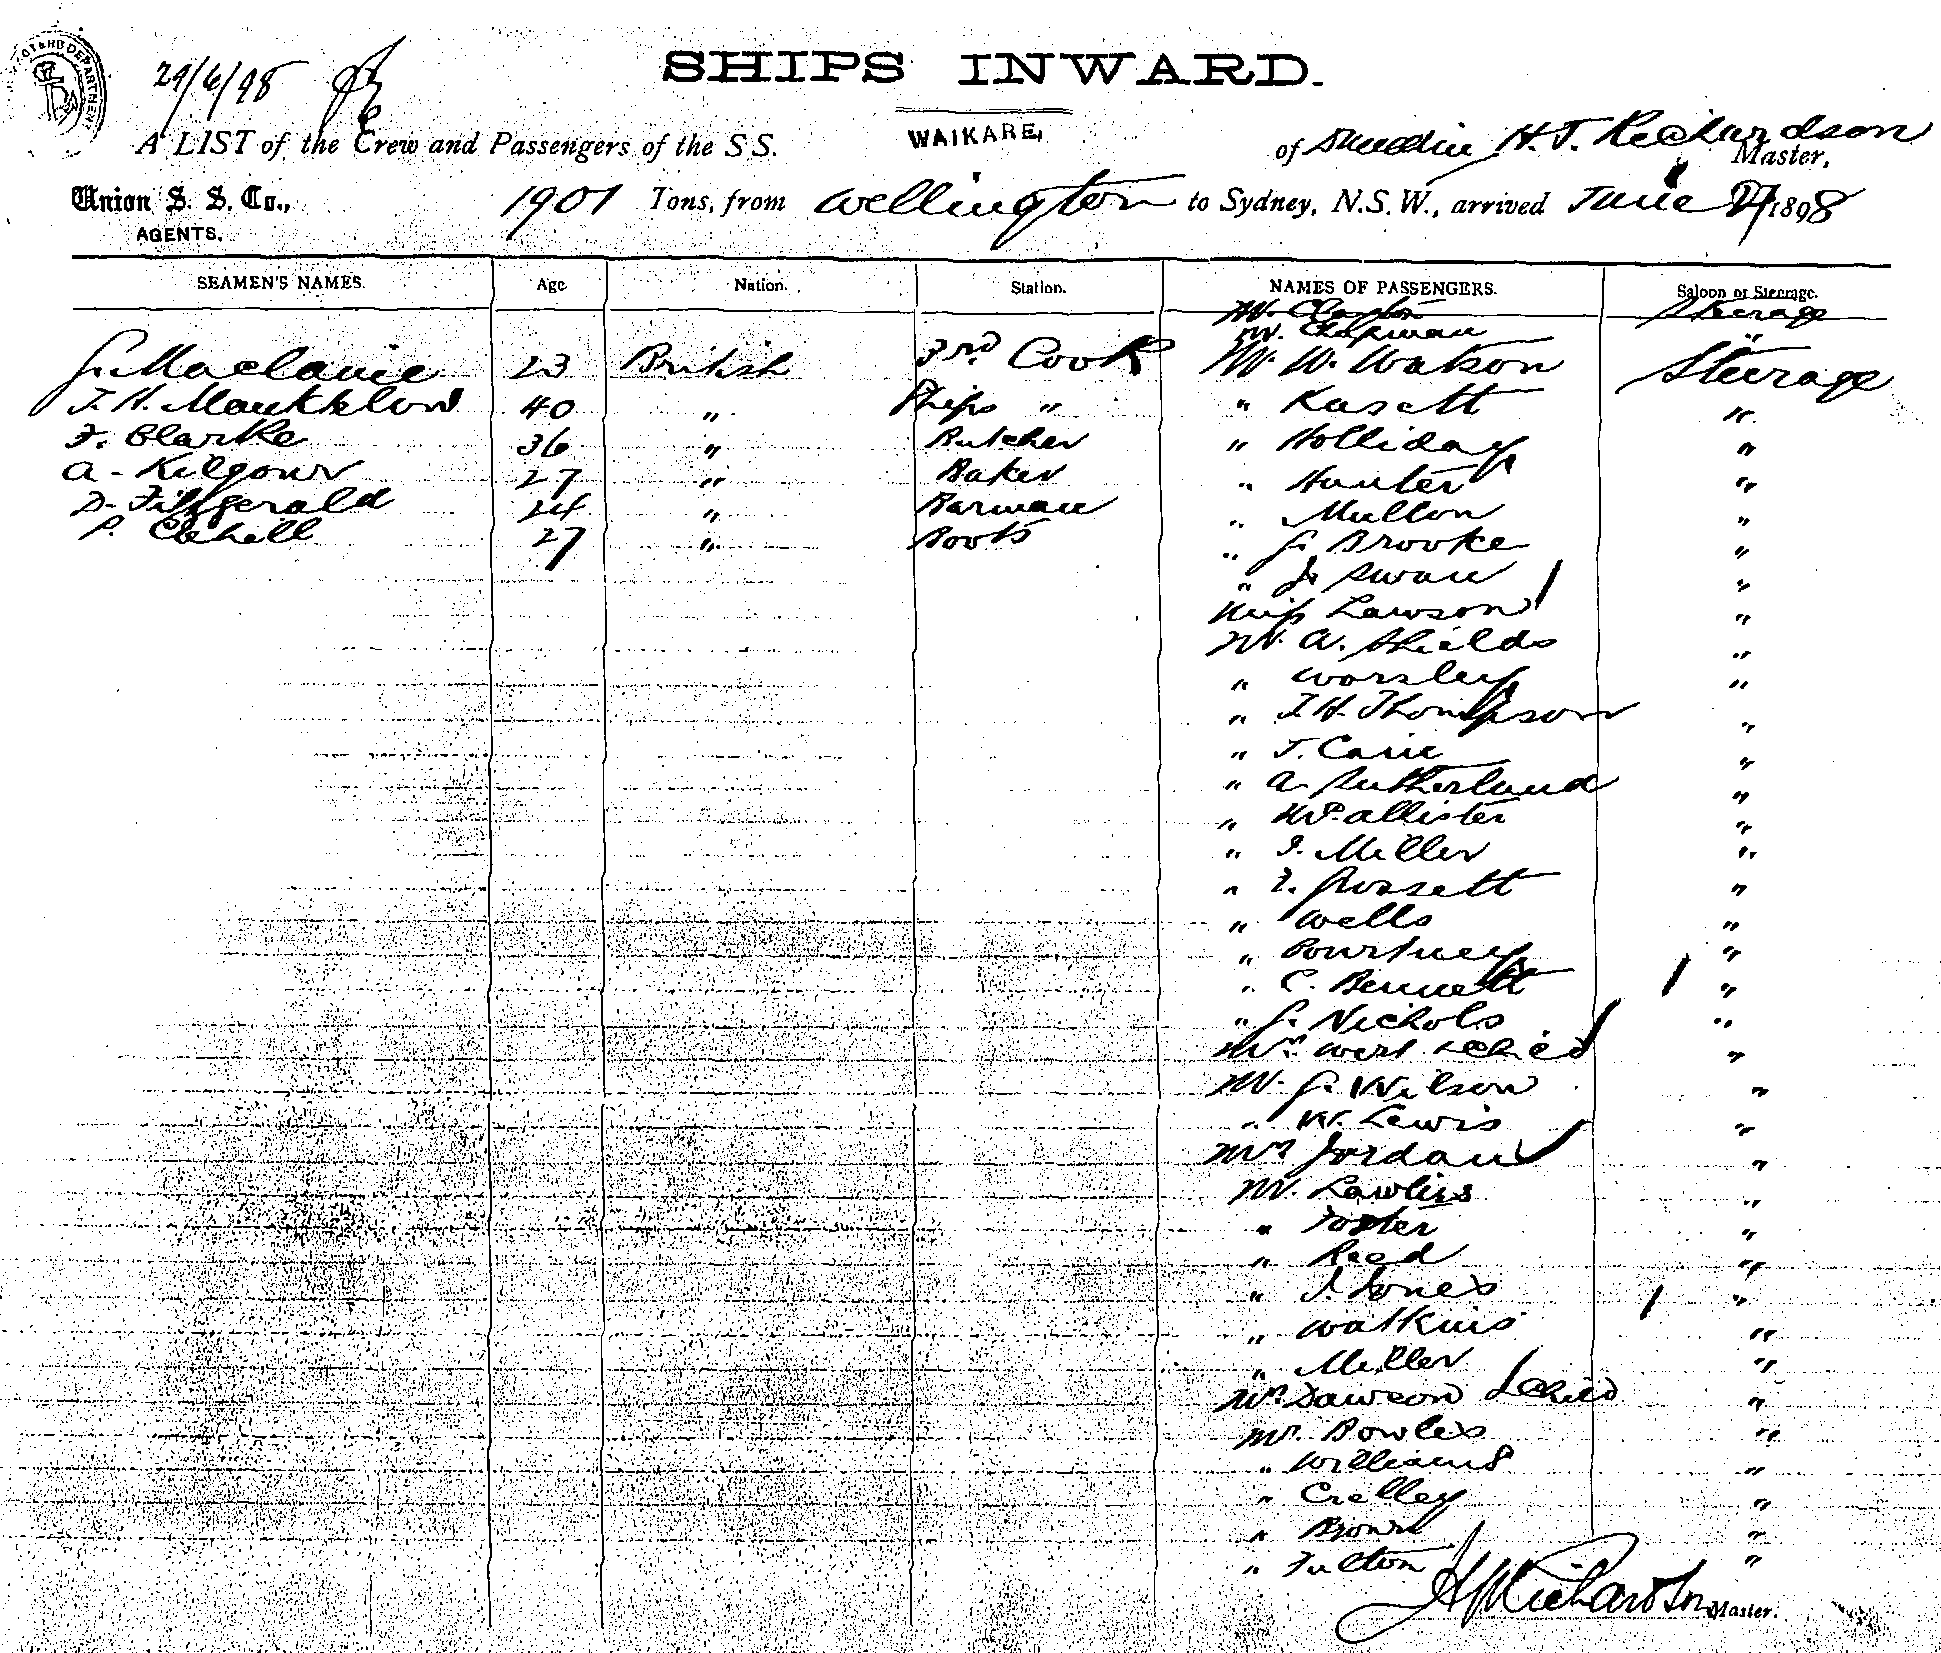 29/6/98
SHIPS INWARD.
A LIST of the Crew and Passengers of the S S. WAIKARE, of Dunedin H. T. Richardson Master,
Union S. S. Co., 1901 Tons, from Wellington to Sydney, N.S.W., arrived June 1898
AGENTS.
SEAMEN'S NAMES. Age Nation. Station. NAMES OF PASSENGERS. Saloon or Steerage.
Mr. Clayton Steerage
Mr. Chapman "
G. Maclaine 23 British 3rd Cook Mr. W. Watson Steerage
40 " Ships " " Kasett "
F. Clarke 36 " Butcher " Holliday "
A. Kilgour 27 " Baker " Hunter "
D. Fitzgerald 24 " Barman " Mullon "
P. Cahell 27 " Boots " G. Brooke "
" J. Swan "
Miss Lawson "
Mr. A. Shields "
" Worsley "
" T. H. Thompson "
" T. Carie "
" A. Sutherland "
" McAllister "
" J. Miller "
" Wells "
" Pourtney "
" C. Bennett "
" G. Nichols "
Mrs West & child "
Mr. G. Wilson "
" W. Lewis "
Mrs Jordan "
Mr. Lawliss "
" Foster "
" Reed "
" J. Jones "
" Watkins "
" Miller "
Mrs Dawson & child "
Mr. Bowles "
" Williams "
" Crelley "
" Brown "
" Fulton "
H T Richardson Master.